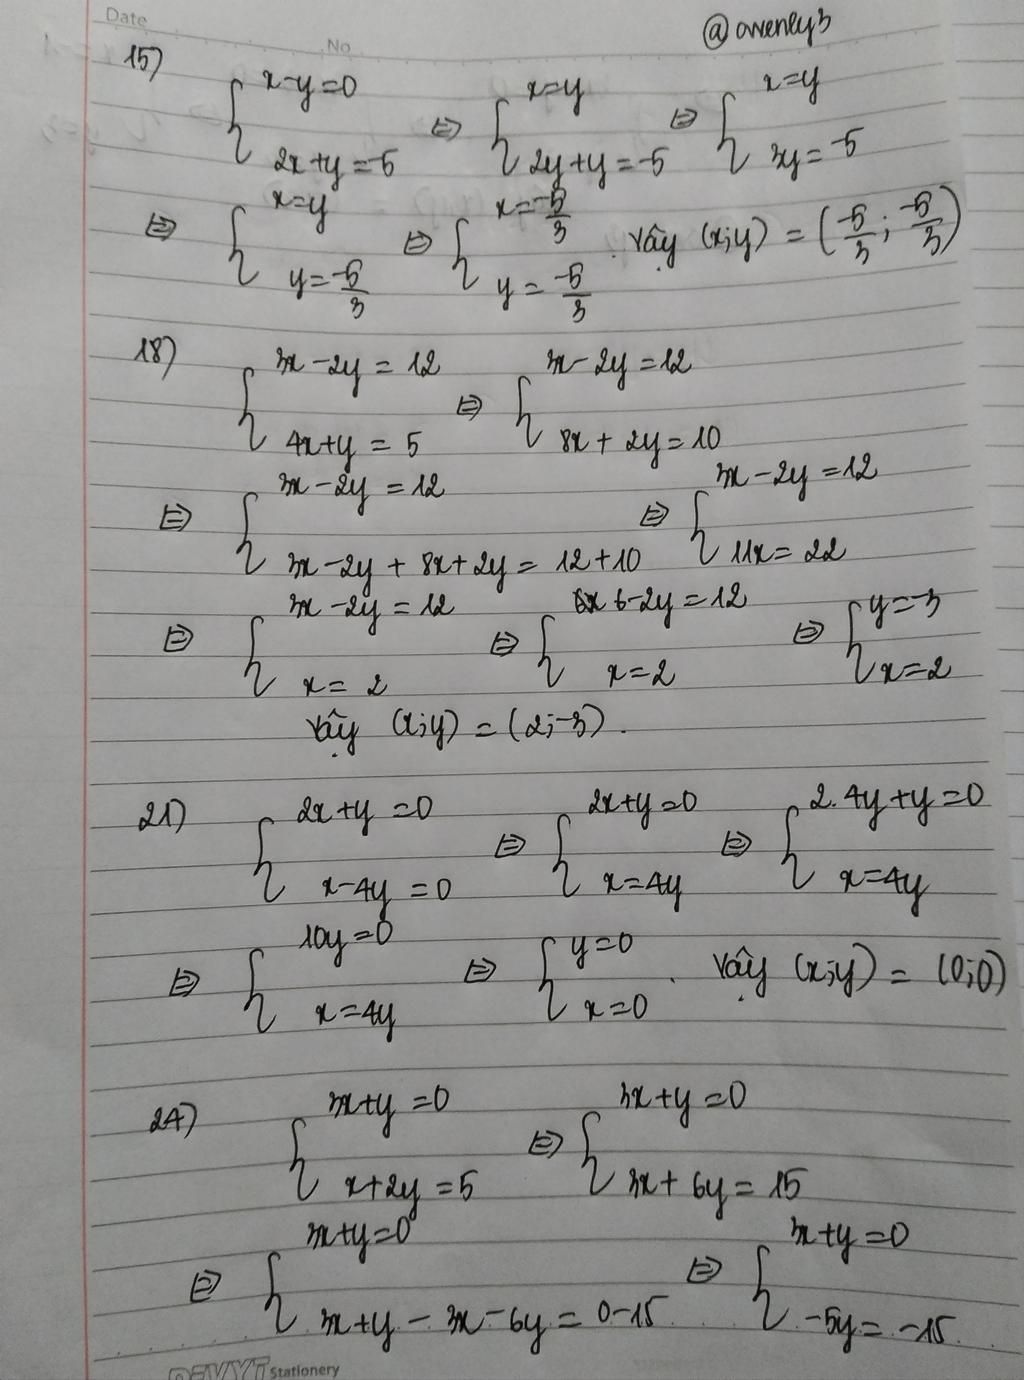 Date
No
@owenly3
15) { x-y=0 ; 2x+y=-5 ⇔ { x=y ; 2y+y=-5 ⇔ { x=y ; 3y=-5
⇔ { x=y ; y=-5/3 ⇔ { x=-5/3 ; y=-5/3 . Vậy (x;y) = (-5/3 ; -5/3)
18) { 3x-2y=12 ; 4x+y=5 ⇔ { 3x-2y=12 ; 8x+2y=10
⇔ { 3x-2y=12 ; 3x-2y+8x+2y=12+10 ⇔ { 3x-2y=12 ; 11x=22
⇔ { 3x-2y=12 ; x=2 ⇔ { 6-2y=12 ; x=2 ⇔ { y=-3 ; x=2
Vậy (x;y) = (2;-3).
21) { 2x+y=0 ; x-4y=0 ⇔ { 2x+y=0 ; x=4y ⇔ { 2.4y+y=0 ; x=4y
⇔ { 10y=0 ; x=4y ⇔ { y=0 ; x=0 . Vậy (x;y) = (0;0)
24) { 3x+y=0 ; x+2y=5 ⇔ { 3x+y=0 ; 3x+6y=15
⇔ { 3x+y=0 ; 3x+y-3x-6y=0-15 ⇔ { 3x+y=0 ; -5y=-15
Stationery